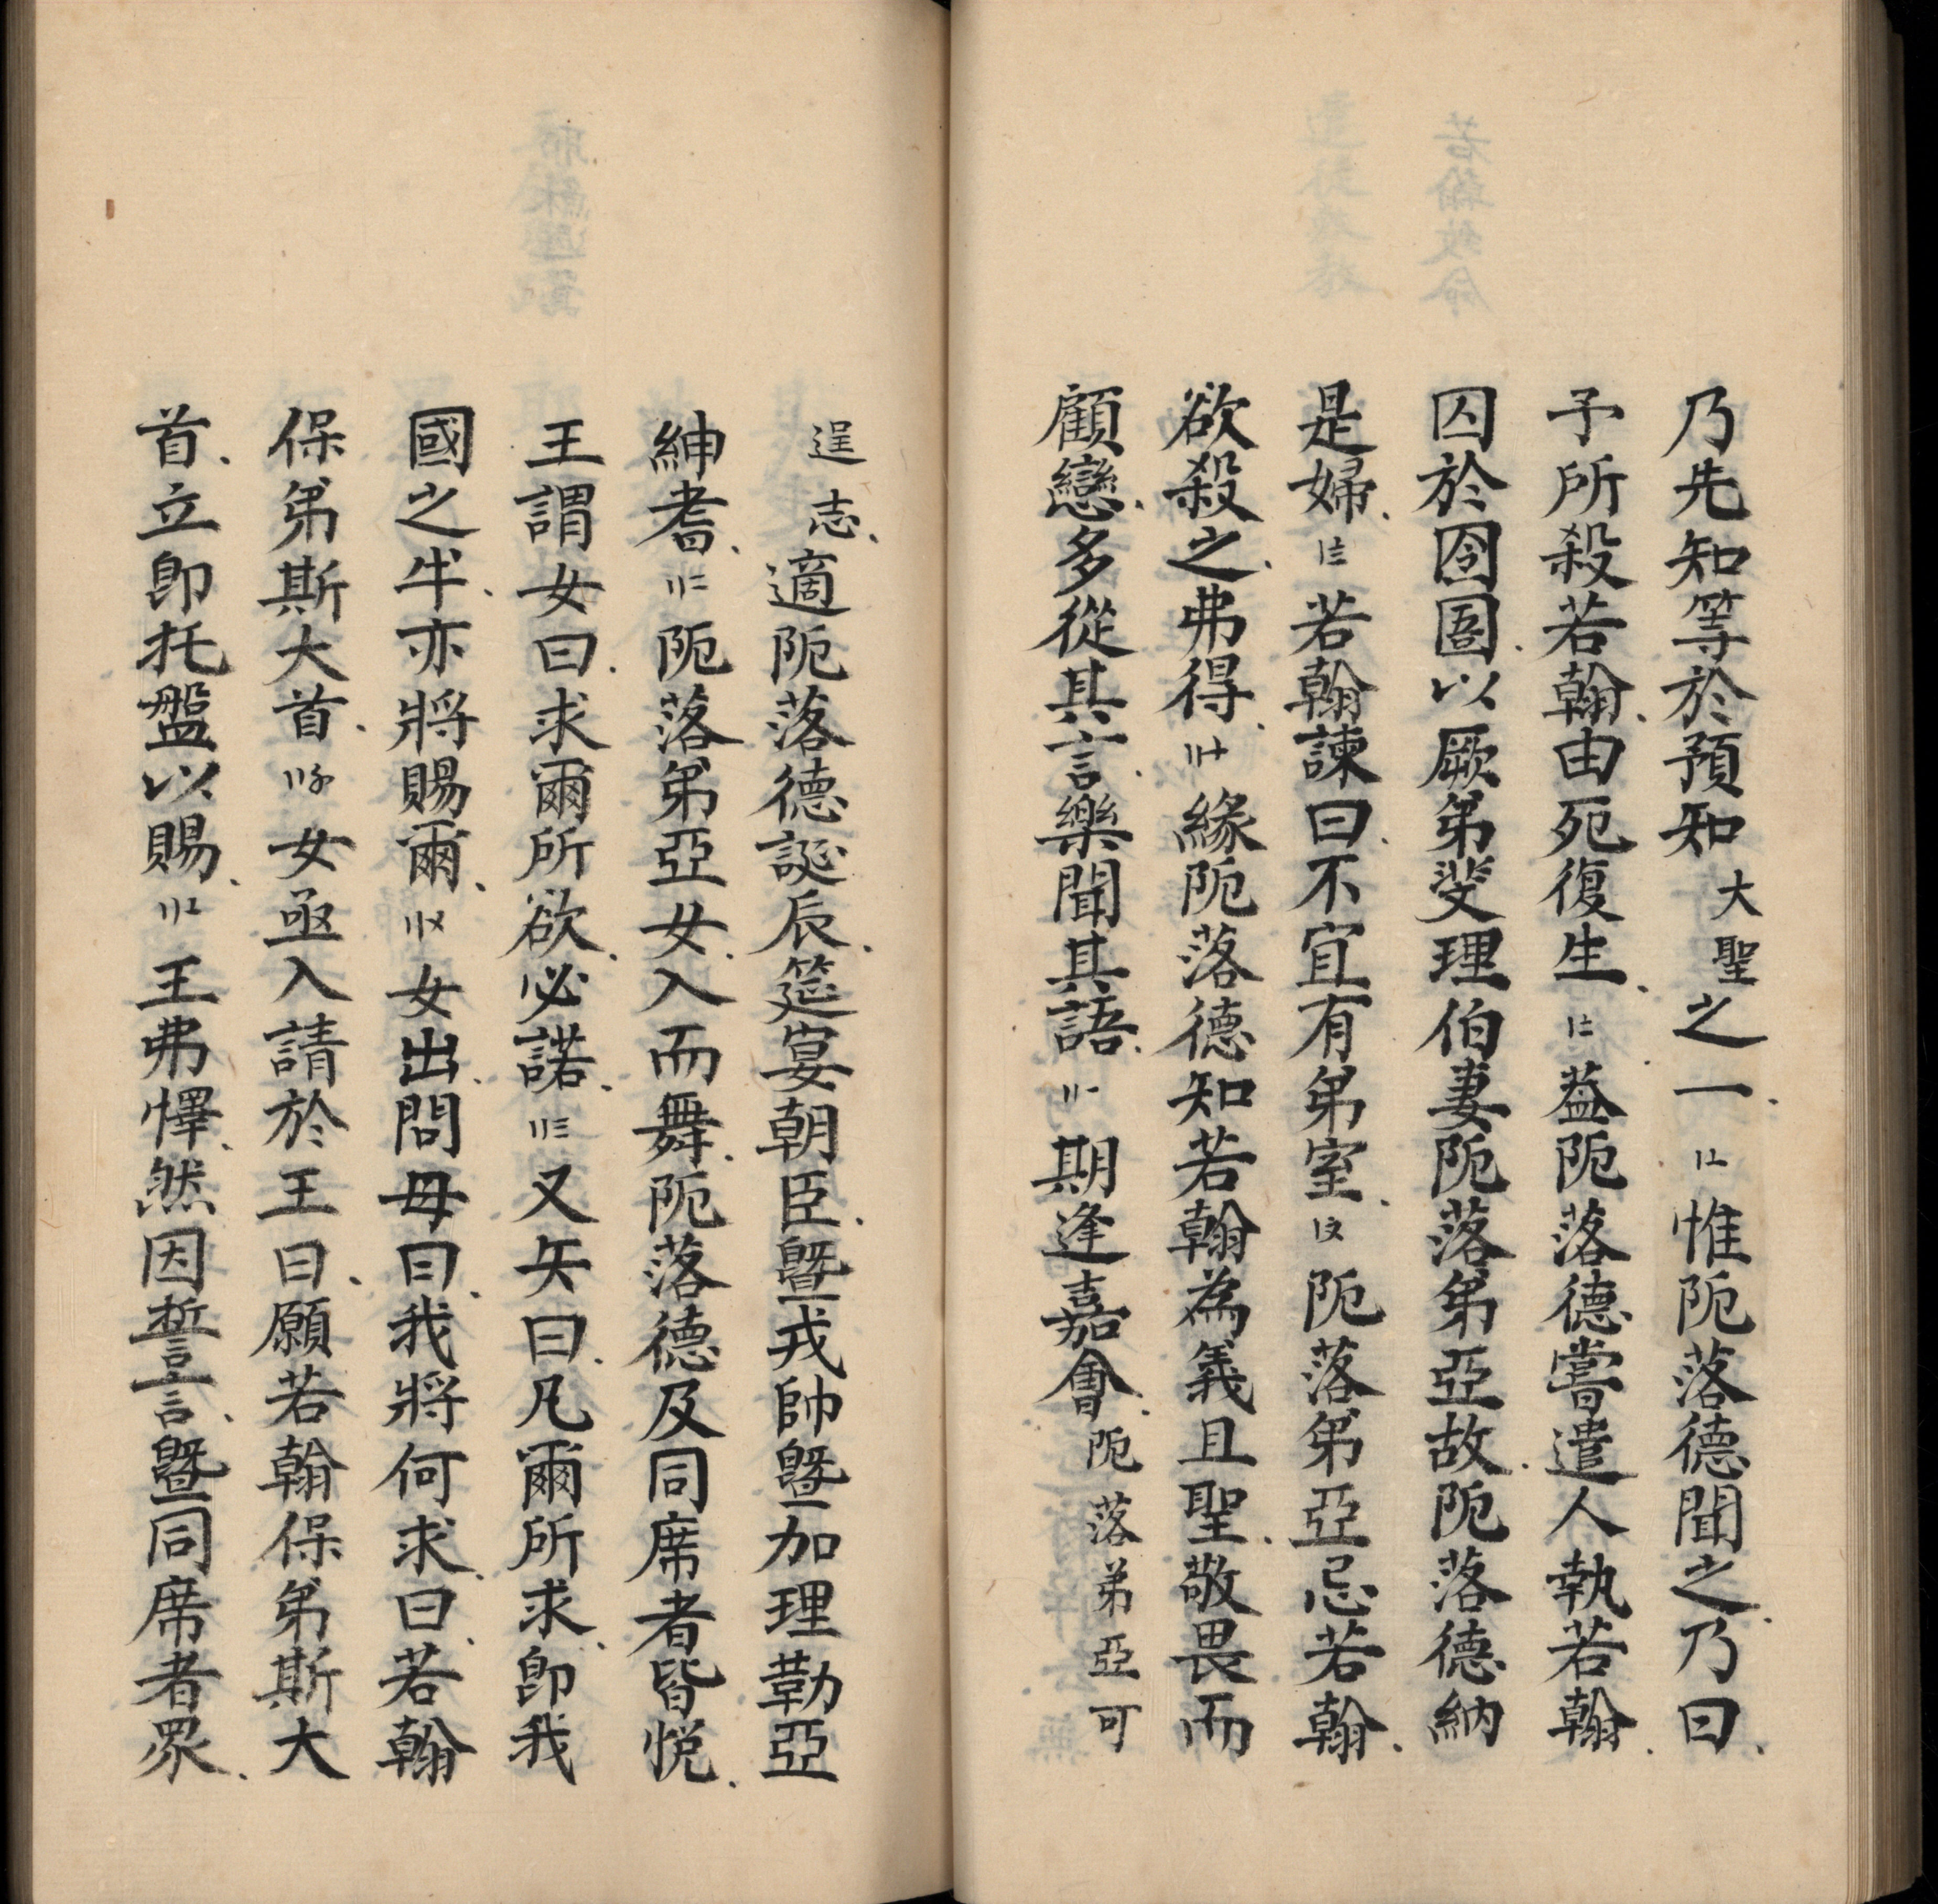 乃先知等於預知大聖之一、〡〦惟阨落德聞之、乃曰、
予所殺若翰、由死復生、〡〧葢阨落德嘗遣人執若翰、
囚於囹圄、以厥弟斐理伯妻阨落弟亞故、阨落德納
是婦、〡〨若翰諫曰、不宜有弟室、〡〩阨落弟亞忌若翰、
欲殺之、弗得、〢十緣阨落德知若翰為義且聖、敬畏而
顧戀、多從其言、樂聞其語、〢一期逢嘉會、阨落弟亞可
逞志、適阨落德誕辰、筵宴朝臣、曁戎帥曁加理勒亞
紳耆、〢二阨落弟亞女、入而舞、阨落德及同席者皆悅、
王謂女曰、求爾所欲、必諾、〢三又矢曰、凡爾所求、卽我
國之半、亦將賜爾、〢〤女出、問母曰、我將何求、曰、若翰
保弟斯大首、〢〥女亟入請於王曰、願若翰保弟斯大
首、立卽托盤以賜、〢〦王弗懌、然因誓言、曁同席者眾、